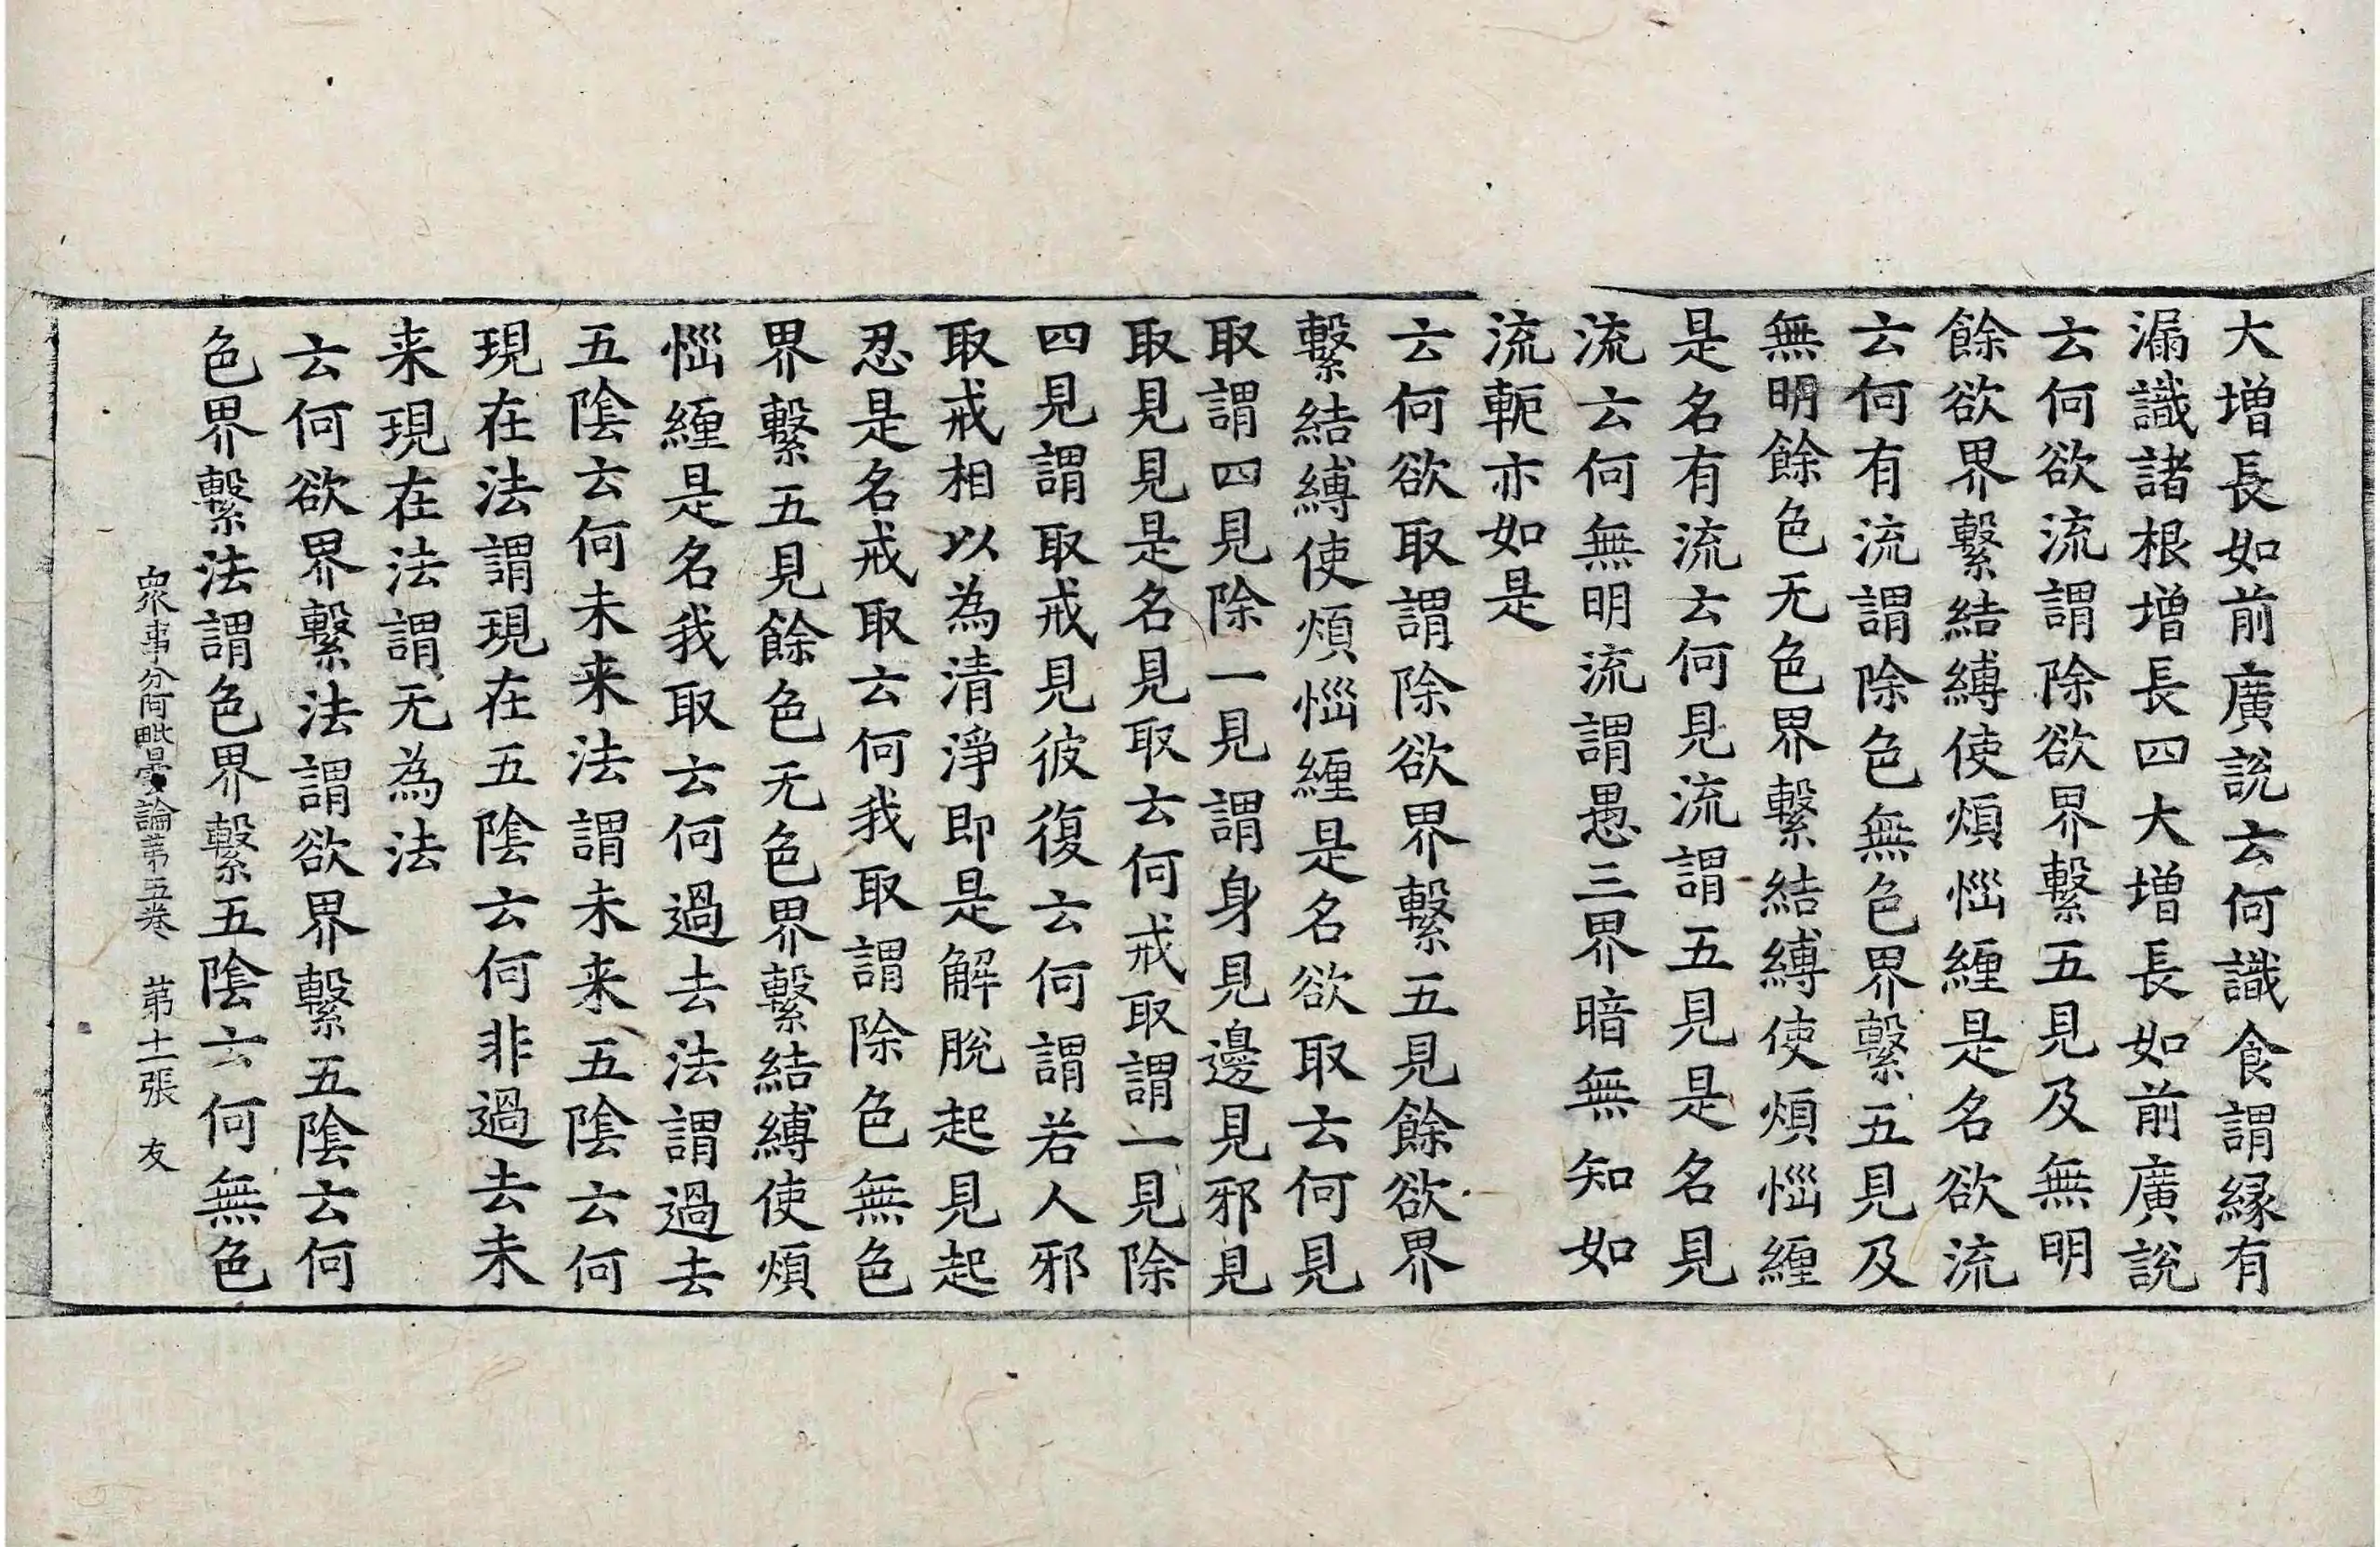 大增長如前廣説云何識食謂縁有
漏識諸根增長四大增長如前廣説
云何欲流謂除欲界繫五見及無明
餘欲界繫結縛使煩惱纏是名欲流
云何有流謂除色無色界繫五見及
無明餘色无色界繫結縛使煩惱纏
是名有流云何見流謂五見是名見
流云何無明流謂愚三界暗無知如
流軛亦如是
云何欲取謂除欲界繫五見餘欲界
繫結縛使煩惱纏是名欲取云何見
取謂四見除一見謂身見邊見邪見
取見見是名見取云何戒取謂一見除
四見謂取戒見彼復云何謂若人邪
取戒相以為清淨即是解脫起見起
忍是名戒取云何我取謂除色無色
界繫五見餘色无色界繫結縛使煩
惱纏是名我取云何過去法謂過去
五陰云何未来法謂未来五陰云何
現在法謂現在五陰云何非過去未
来現在法謂无為法
云何欲界繫法謂欲界繫五陰云何
色界繫法謂色界繫五陰云何無色
衆事分阿毗曇論苐五卷　苐十二張　友